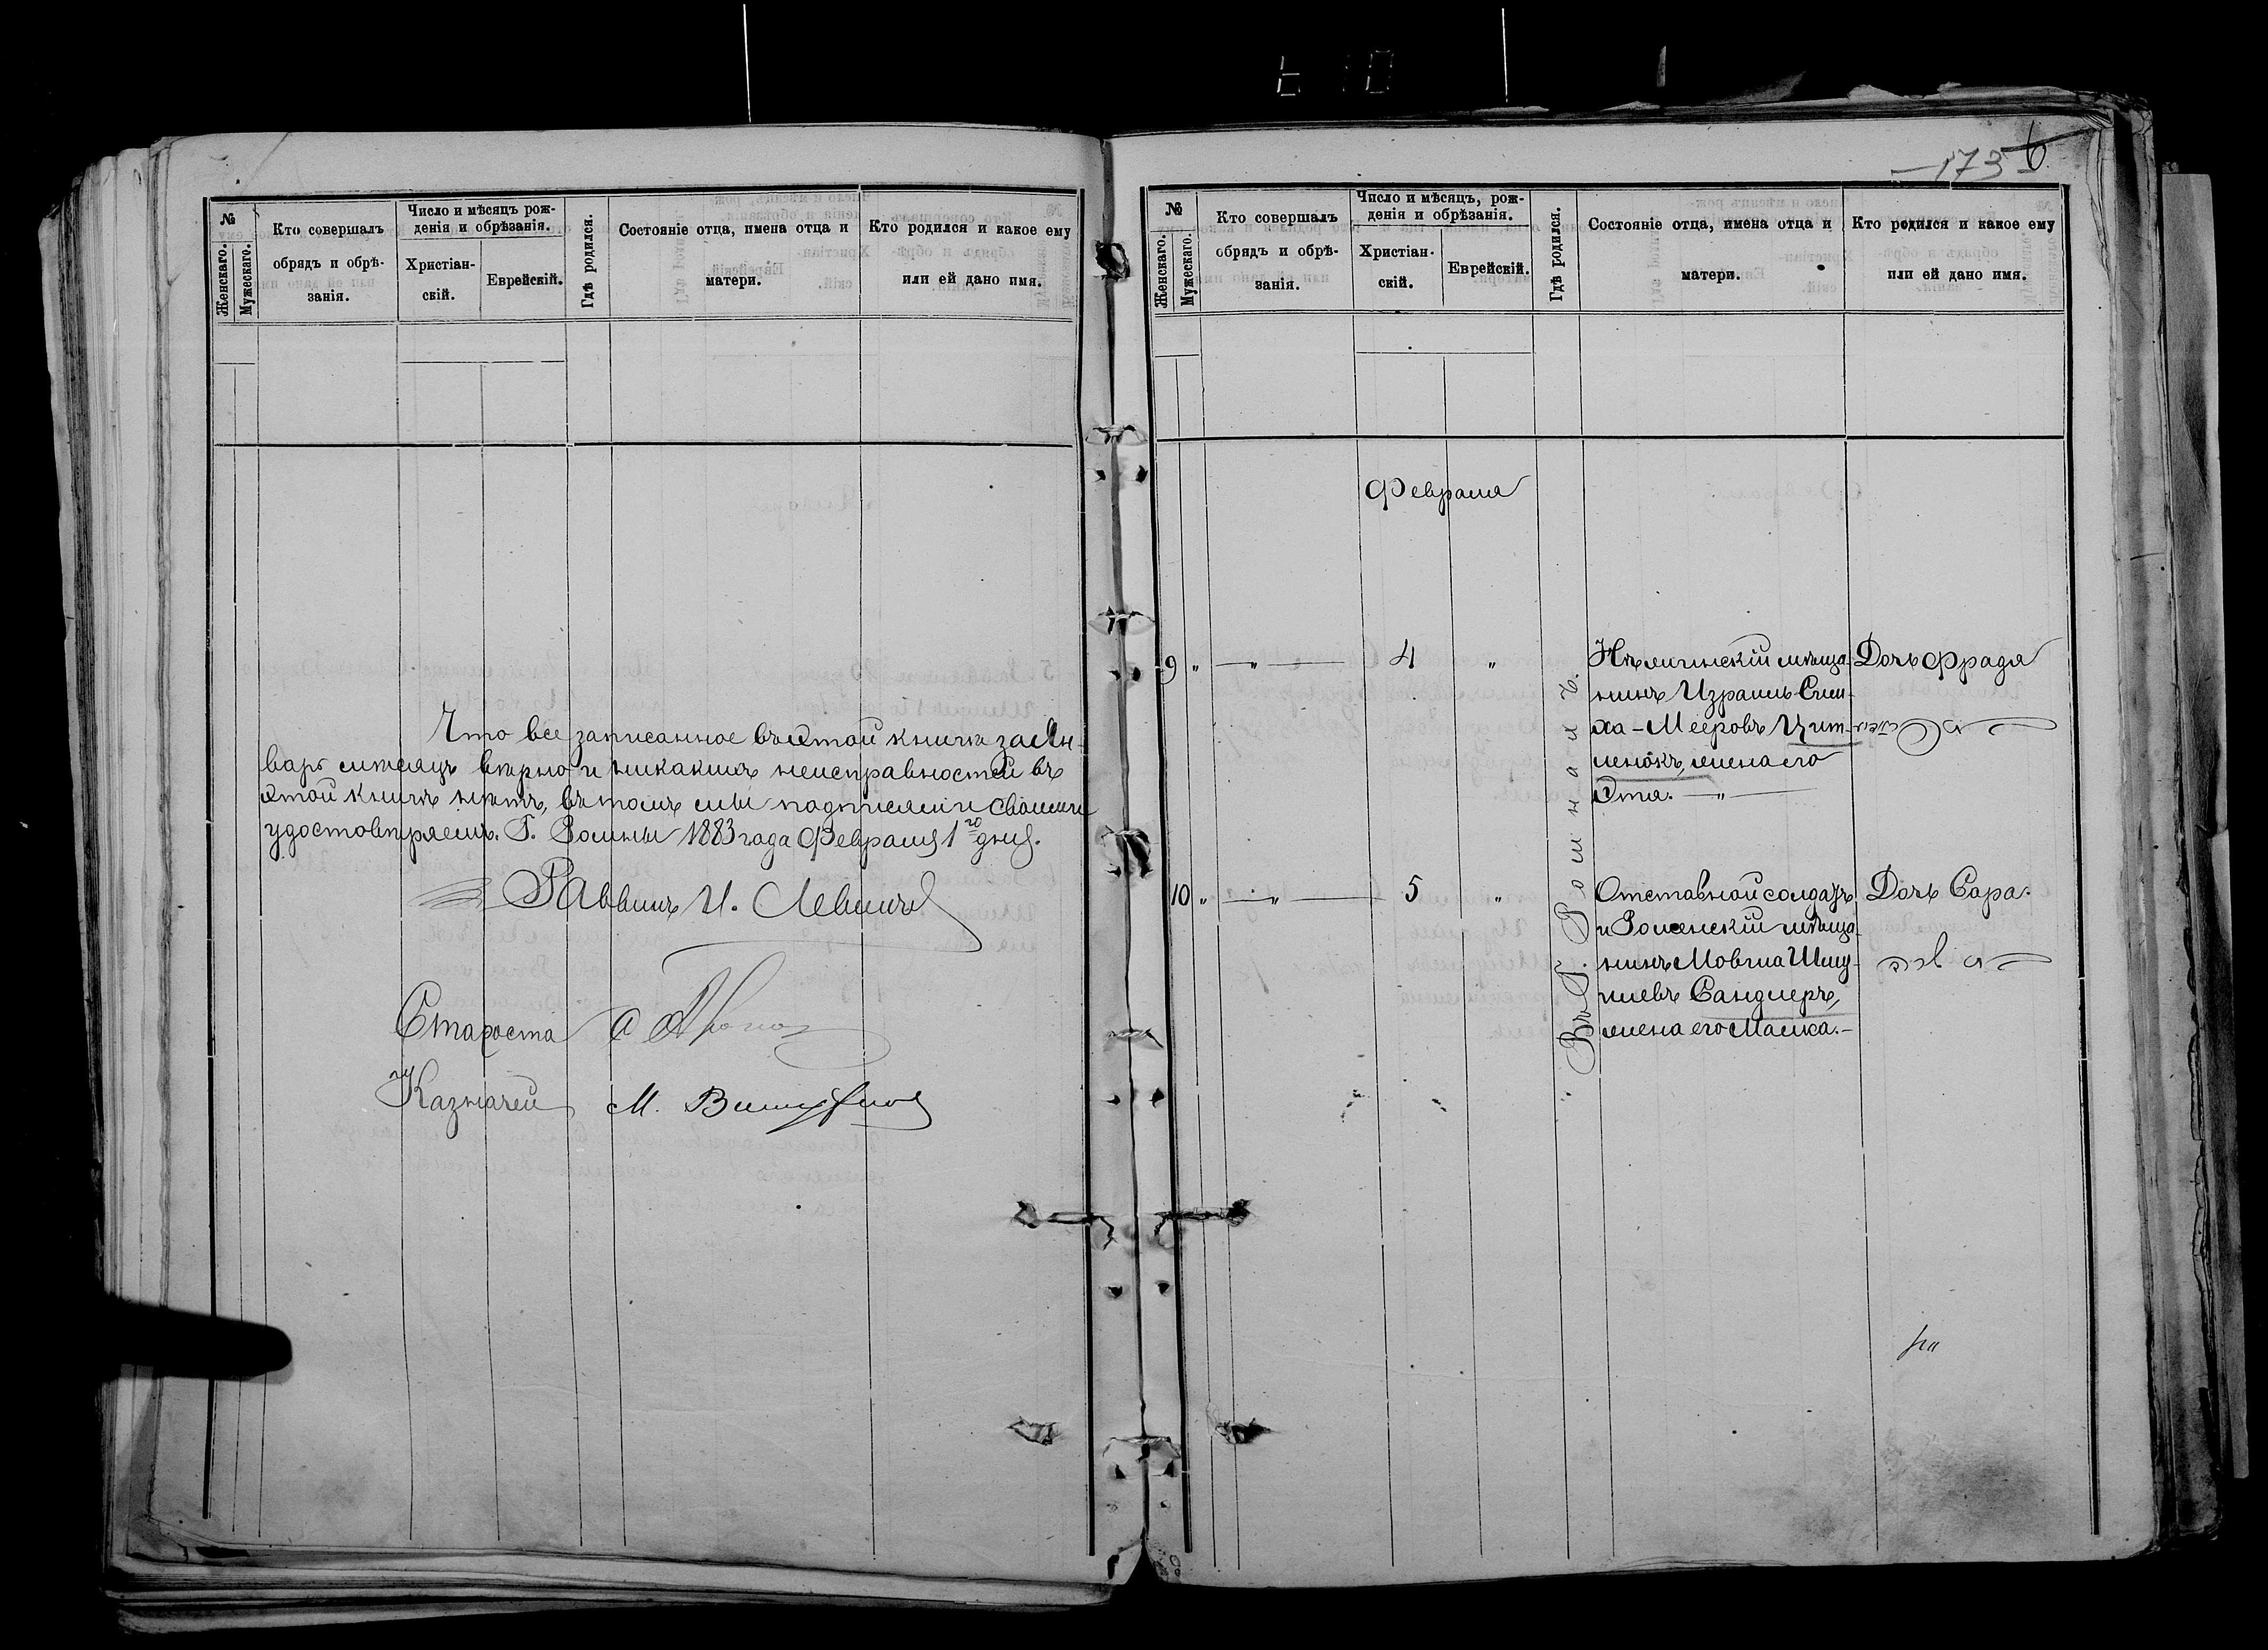 №
Женскаго.
Мужескаго.
Кто совершалъ
обрядъ и обрѣ-
занія.
Число и мѣсяцъ рож-
денія и обрѣзанія.
Христіан-
скій.
Еврейскій.
Гдѣ родился.
Состояніе отца, имена отца и
матери.
Кто родился и какое ему
или ей дано имя.
Что все записанное въ этой книгѣ за Ян-
варь мѣсяцъ вѣрно и никакихъ неисправностей въ
этой книгѣ нѣтъ, въ томъ мы подписями своими
удостовѣряемъ. Г. Ромны 1883 года Февраля 1го дня.
Раввинъ И. Левинъ
Староста
Казначей М.
173
6
№
Женскаго.
Мужескаго.
Кто совершалъ
обрядъ и обрѣ-
занія.
Число и мѣсяцъ, рож-
денія и обрѣзанія.
Христіан-
скій.
Еврейскій.
Гдѣ родился.
Состояніе отца, имена отца и
матери.
Кто родился и какое ему
или ей дано имя.
Февраля
9 " — " — 4 "
Нѣжинскій мѣща-
нинъ Израиль Сим-
ха-Мееровъ Цит-
ленокъ, жена его
Этя. — " —
Дочь Фрадя
Въ Г. Ромнахъ.
10 " — " — 5 "
Отставной солдатъ
и Роменскій мѣща-
нинъ Мовша Шму-
илевъ Сандлеръ,
жена его Малка.-
Дочь Сара.